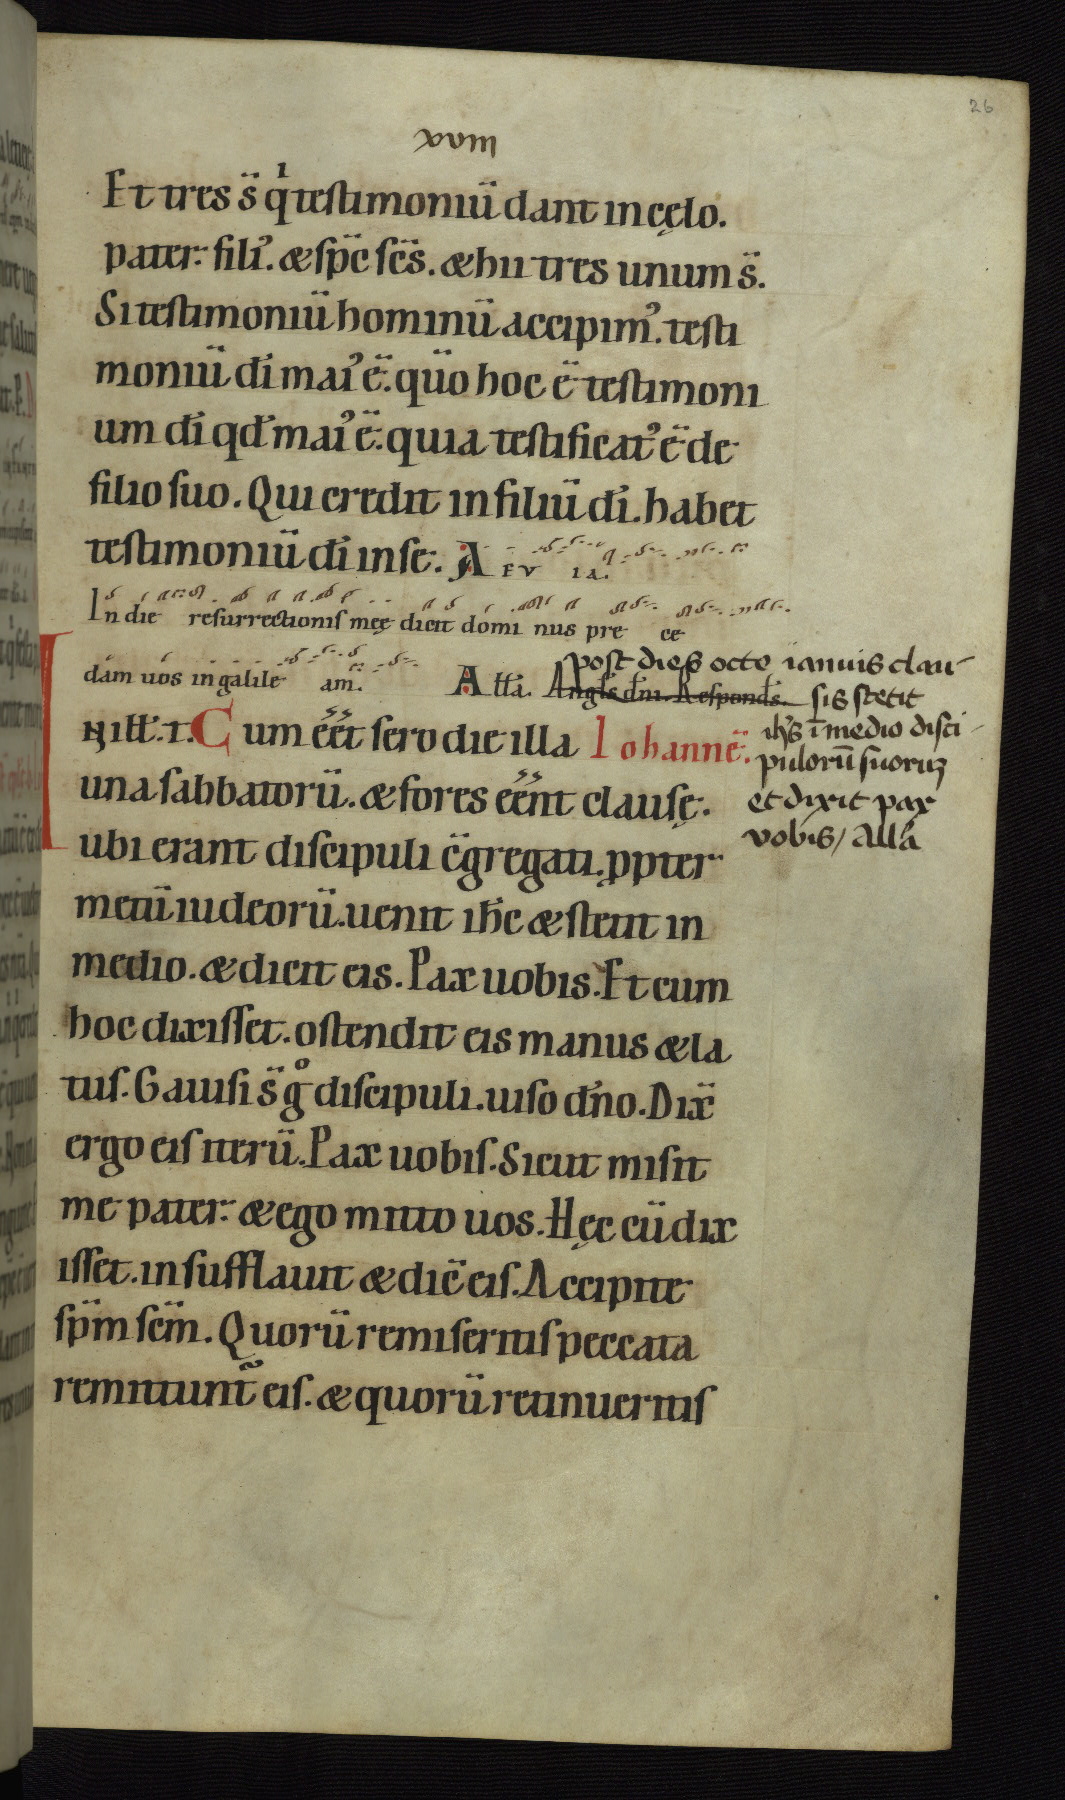 26
xviii
Et tres s̄ qͥ testimoniū dant in cęlo.
pater. filiꝰ. & sp̄c sc̄s. & hii tres unum s̄.
Si testimoniū hominū accipimꝰ. testi
moniū di̅ maiꝰ ē. qūo hoc ē testimoni
um di̅ qd̅ maiꝰ ē. quia testificatꝰ ē de
filio suo. Qui credit in filiū di̅. habet
testimoniū di̅ in se. A EV IA.
In die resurrectionis meę dicit domi nus pre ce
dam uos in galile am. Atta. Angl's dn̅i. Respond's.
post dies octo ianuis clau-
sis stetit
ihs̅ i̅ medio disci-
puloru̅ suoruꝫ
et dixit pax
vobis / alla̅
IN ill̅. t. Cum eēt sero die illa Iohannē.
una sabbatorū. & fores eēnt clausę.
ubi erant discipuli c̄gregati. ꝓpter
metū iudeorū. uenit ih̅c & stetit in
medio. & dicit eis. Pax uobis. Et cum
hoc dixisset. ostendit eis manus & la
tus. Gauisi s̄ gͦ discipuli. uiso dn̅o. Dix̄
ergo eis iterū. Pax uobis. Sicut misit
me pater. & ego mitto uos. Hęc cū dix
isset. insufflauit & dic̄ eis. Accipite
sp̄m sc̄m. Quorū remiseritis peccata
remittunt᷑ eis. & quorū retinueritis